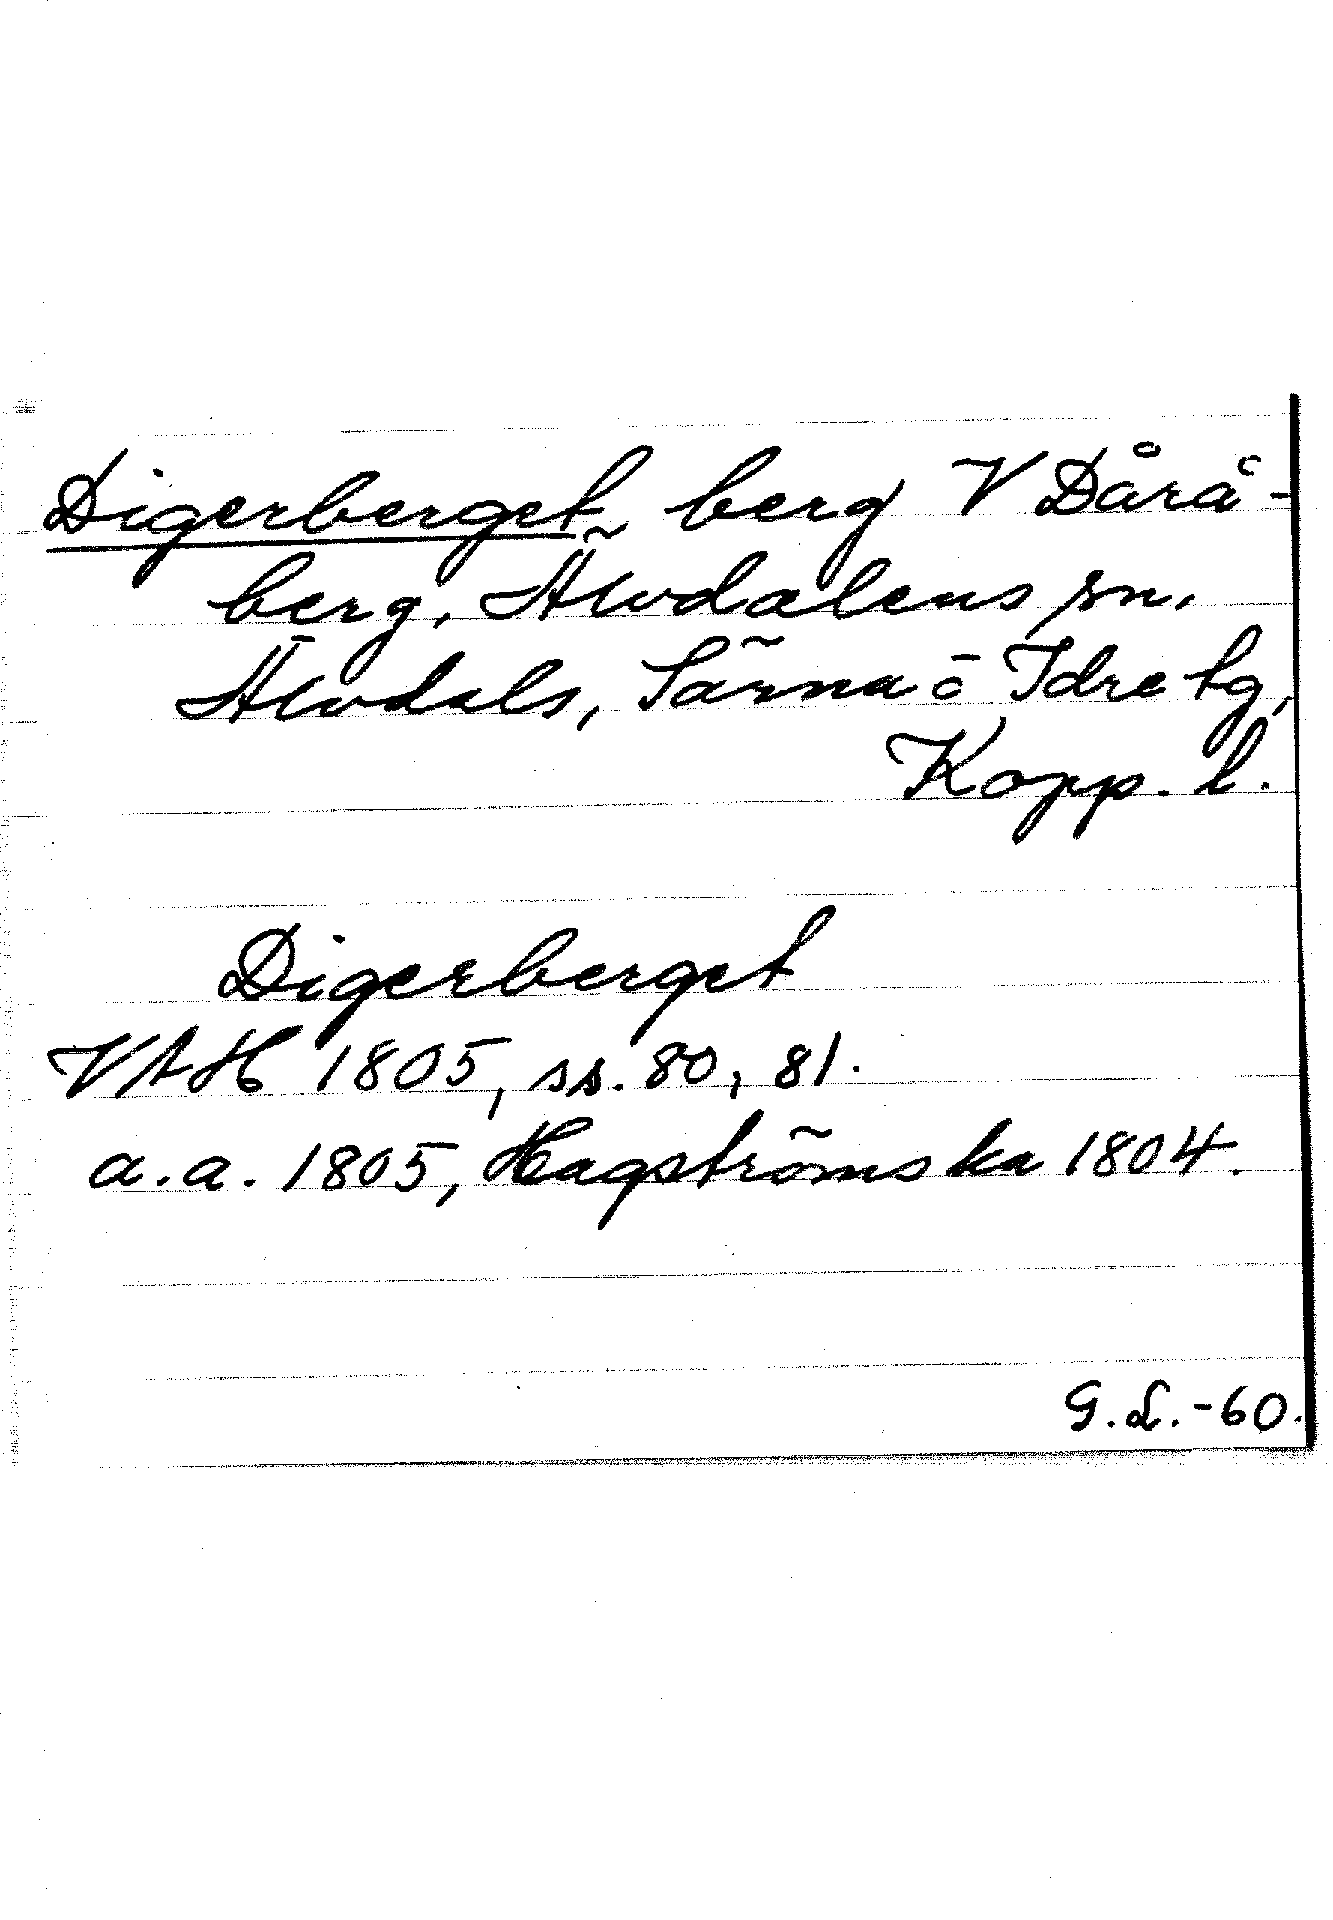 Digerberget, berg V Dårå-
berg, Älvdalens sn.
Älvdals, Särna o Idre tg,
Kopp. l.
Digerberget
VAH 1805, ss. 80, 81.
a.a. 1805, Hagströmska 1804.
G.L.-60.